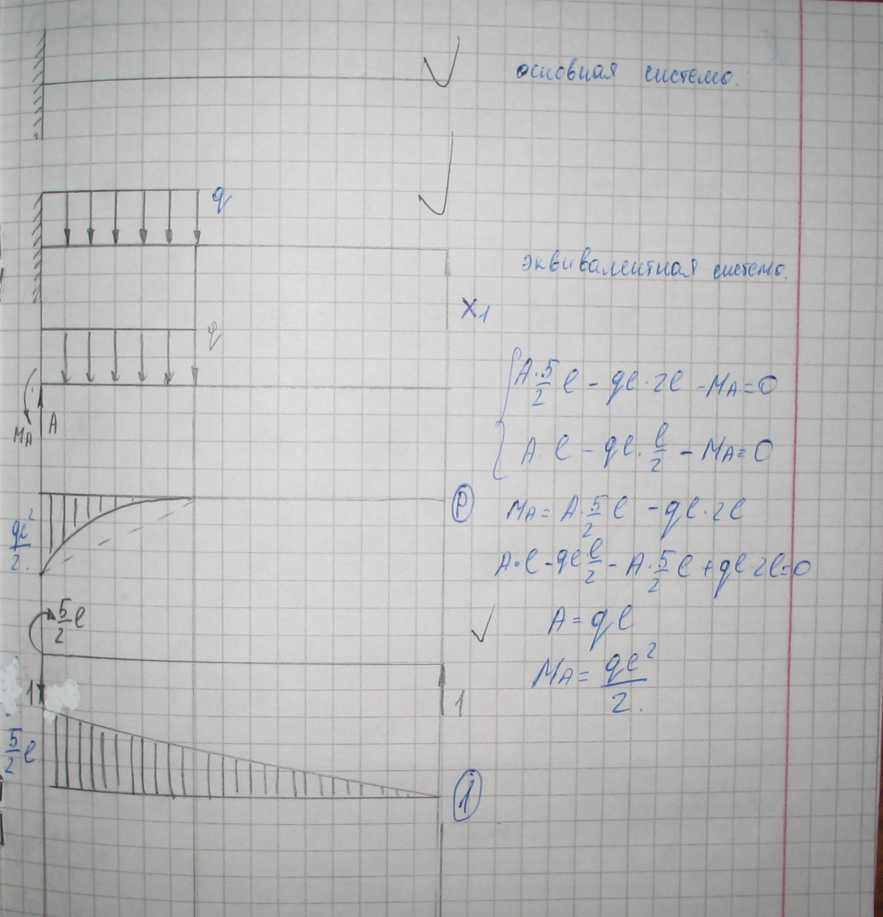 основная система.
q
эквивалентная система.
X₁
q
A·5/2 l - ql·2l - MA = 0
MA A
A·l - ql·l/2 - MA = 0
ql²/2.
P
MA = A·5/2 l - ql·2l
A·l - ql l/2 - A·5/2 l + ql 2l = 0
5/2 l
A = ql
MA = ql²/2.
1
1
5/2 l
1